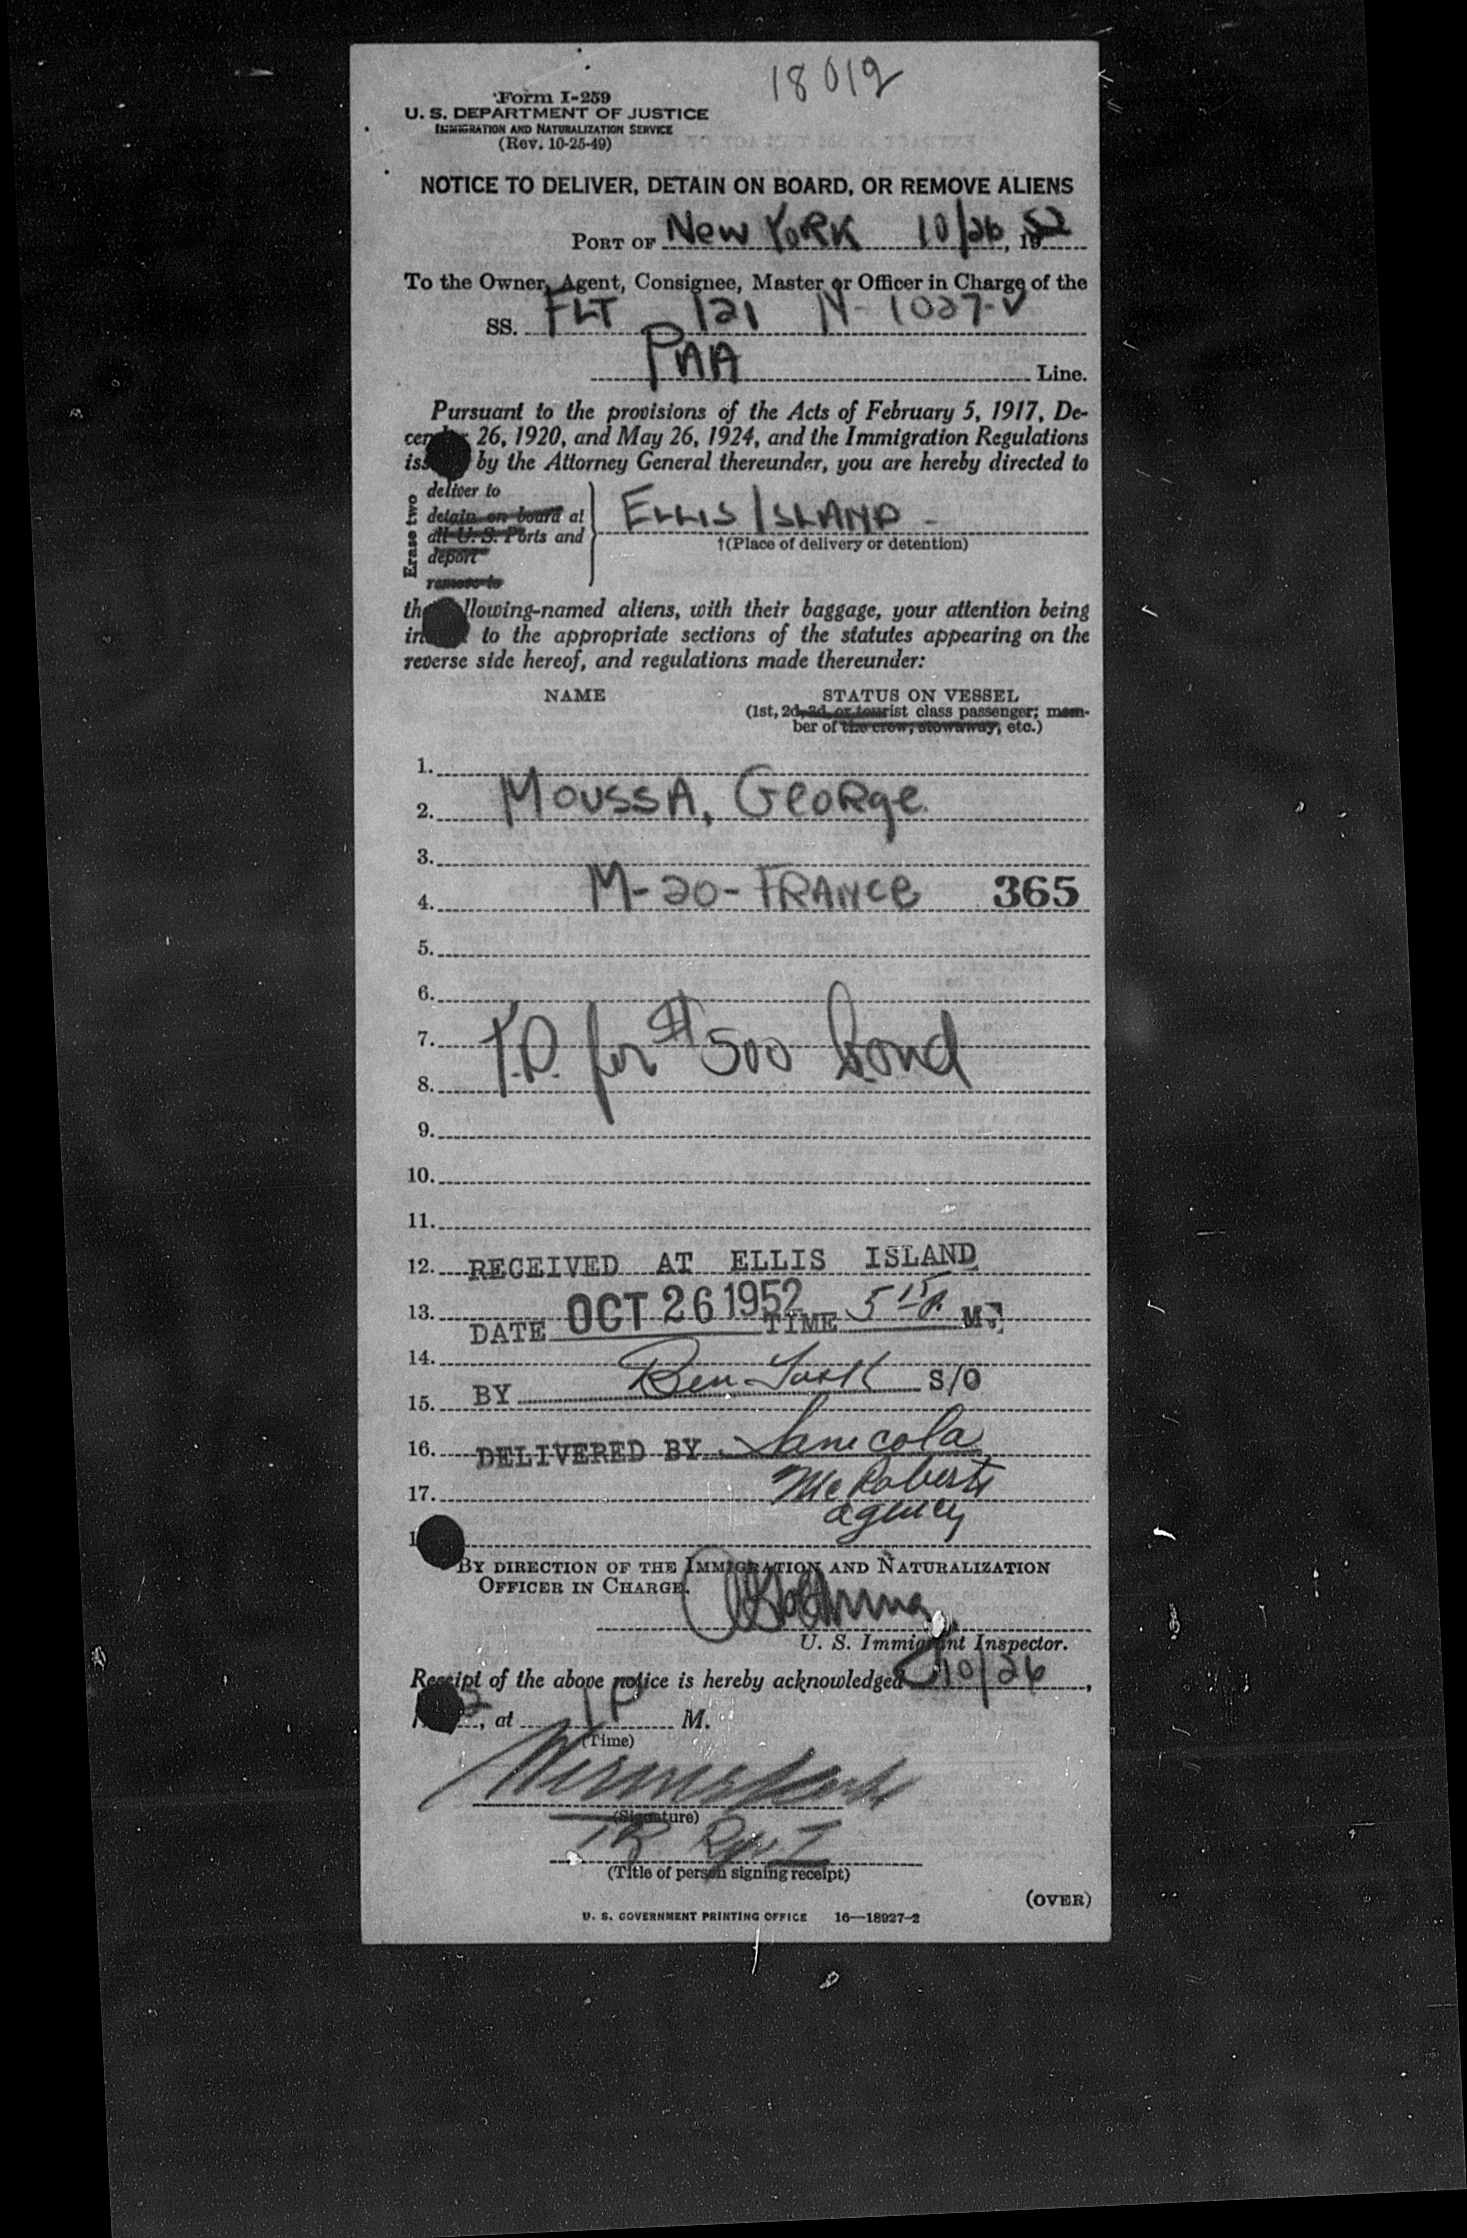 18019
Form I-259
U. S. DEPARTMENT OF JUSTICE
IMMIGRATION AND NATURALIZATION SERVICE
(Rev. 10-25-49)
NOTICE TO DELIVER, DETAIN ON BOARD, OR REMOVE ALIENS
PORT OF New YORK 10/26, 1952
To the Owner, Agent, Consignee, Master or Officer in Charge of the
SS. FLT 121 N-1027-V
PAA Line.
Pursuant to the provisions of the Acts of February 5, 1917, De-
cember 26, 1920, and May 26, 1924, and the Immigration Regulations
issued by the Attorney General thereunder, you are hereby directed to
Erase two
deliver to
detain on board at
all U. S. Ports and
deport
remove to
ELLIS ISLAND -
↑(Place of delivery or detention)
the following-named aliens, with their baggage, your attention being
invited to the appropriate sections of the statutes appearing on the
reverse side hereof, and regulations made thereunder:
NAME STATUS ON VESSEL
(1st, 2d, 3d, or tourist class passenger; mem-
ber of the crew, stowaway, etc.)
1.
2. MOUSSA, GeoRge
3.
4. M-20-FRANCe 365
5.
6.
7. T.D. for $500 bond
8.
9.
10.
11.
12. RECEIVED AT ELLIS ISLAND
13. DATE OCT 26 1952 TIME 5 15 P. M.
14.
15. BY Ben S/O
16. DELIVERED BY Sanicola
17. McRoberts
agency
BY DIRECTION OF THE IMMIGRATION AND NATURALIZATION
OFFICER IN CHARGE.
U. S. Immigrant Inspector.
Receipt of the above notice is hereby acknowledged 10/26,
2, at 1 P M.
(Time)
(Signature)
(Title of person signing receipt)
(OVER)
U. S. GOVERNMENT PRINTING OFFICE 16—18927-2